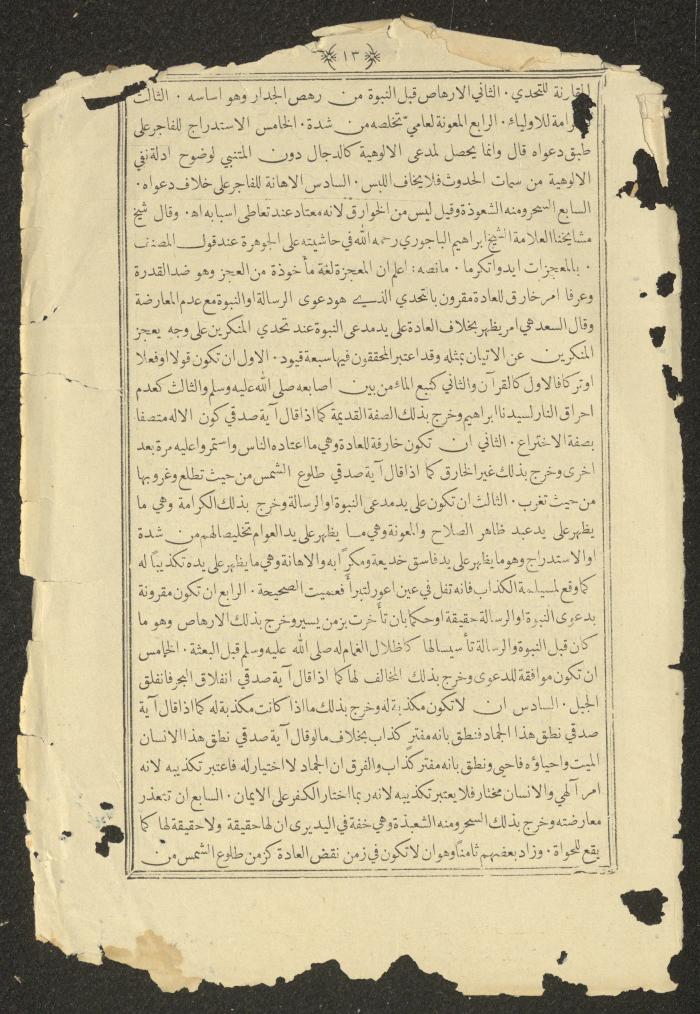 ﴿١٣﴾
المقارنة للتحدي . الثاني الارهاص قبل النبوة من رهص الجدار وهو اساسه . الثالث
الكرامة للاولياء . الرابع المعونة لعامي تخلصه من شدة . الخامس الاستدراج للفاجر على
طبق دعواه قال وانما يحصل لمدعى الالوهية كالدجال دون المتنبي لوضوح ادلة نفي
الالوهية من سمات الحدوث فلا يخاف اللبس . السادس الاهانة للفاجر على خلاف دعواه .
السابع السحر ومنه الشعوذة وقيل ليس من الخوارق لانه معتاد عند تعاطى اسبابه اه . وقال شيخ
مشايخنا العلامة الشيخ ابراهيم الباجوري رحمه الله في حاشيته على الجوهرة عند قول المصنف
. بالمعجزات ايدوا تكرما . ما نصه : اعلم ان المعجزة لغة مأخوذة من العجز وهو ضد القدرة
وعرفا امر خارق للعادة مقرون بالتحدي الذي هو دعوى الرسالة او النبوة مع عدم المعارضة
وقال السعد هي امر يظهر بخلاف العادة على يد مدعى النبوة عند تحدي المنكرين على وجه يعجز
المنكرين عن الاتيان بمثله وقد اعتبر المحققون فيها سبعة قيود . الاول ان تكون قولا او فعلا
او تركا فالاول كالقرآن والثاني كنبع الماء من بين اصابعه صلى الله عليه وسلم والثالث كعدم
احراق النار لسيدنا ابراهيم وخرج بذلك الصفة القديمة كما اذا قال آية صدقي كون الاله متصفا
بصفة الاختراع . الثاني ان تكون خارقة للعادة وهي ما اعتاده الناس واستمروا عليه مرة بعد
اخرى وخرج بذلك غير الخارق كما اذا قال آية صدقي طلوع الشمس من حيث تطلع وغروبها
من حيث تغرب . الثالث ان تكون على يد مدعى النبوة او الرسالة وخرج بذلك الكرامة وهي ما
يظهر على يد عبد ظاهر الصلاح والمعونة وهي ما يظهر على يد العوام تخليصا لهم من شدة
او الاستدراج وهو ما يظهر على يد فاسق خديعة ومكرًا به والاهانة وهي ما يظهر على يده تكذيبا له
كما وقع لمسيلمة الكذاب فانه تفل في عين اعور لتبرأ فعميت الصحيحة . الرابع ان تكون مقرونة
بدعوى النبوة او الرسالة حقيقة او حكما بان تأخرت بزمن يسير وخرج بذلك الارهاص وهو ما
كان قبل النبوة والرسالة تأسيسا لها كاظلال الغمام له صلى الله عليه وسلم قبل البعثة . الخامس
ان تكون موافقة للدعوى وخرج بذلك المخالف لها كما اذا قال آية صدقي انفلاق البحر فانفلق
الجبل . السادس ان لا تكون مكذبة له وخرج بذلك ما اذا كانت مكذبة له كما اذا قال آية
صدقي نطق هذا الجماد فنطق بانه مفتر كذاب بخلاف ما لو قال آية صدقي نطق هذا الانسان
الميت واحياؤه فاحيى ونطق بانه مفتر كذاب والفرق ان الجماد لا اختيار له فاعتبر تكذيبه لانه
امر آلهي والانسان مختار فلا يعتبر تكذيبه لانه ربما اختار الكفر على الايمان . السابع ان تتعذر
معارضته وخرج بذلك السحر ومنه الشعبذة وهي خفة في اليد يرى ان لها حقيقة ولا حقيقة لها كما
يقع للحواة . وزاد بعضهم ثامنًا وهو ان لا تكون في زمن نقض العادة كزمن طلوع الشمس من